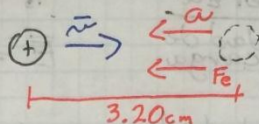 + v̄ a
Fe
3.20cm